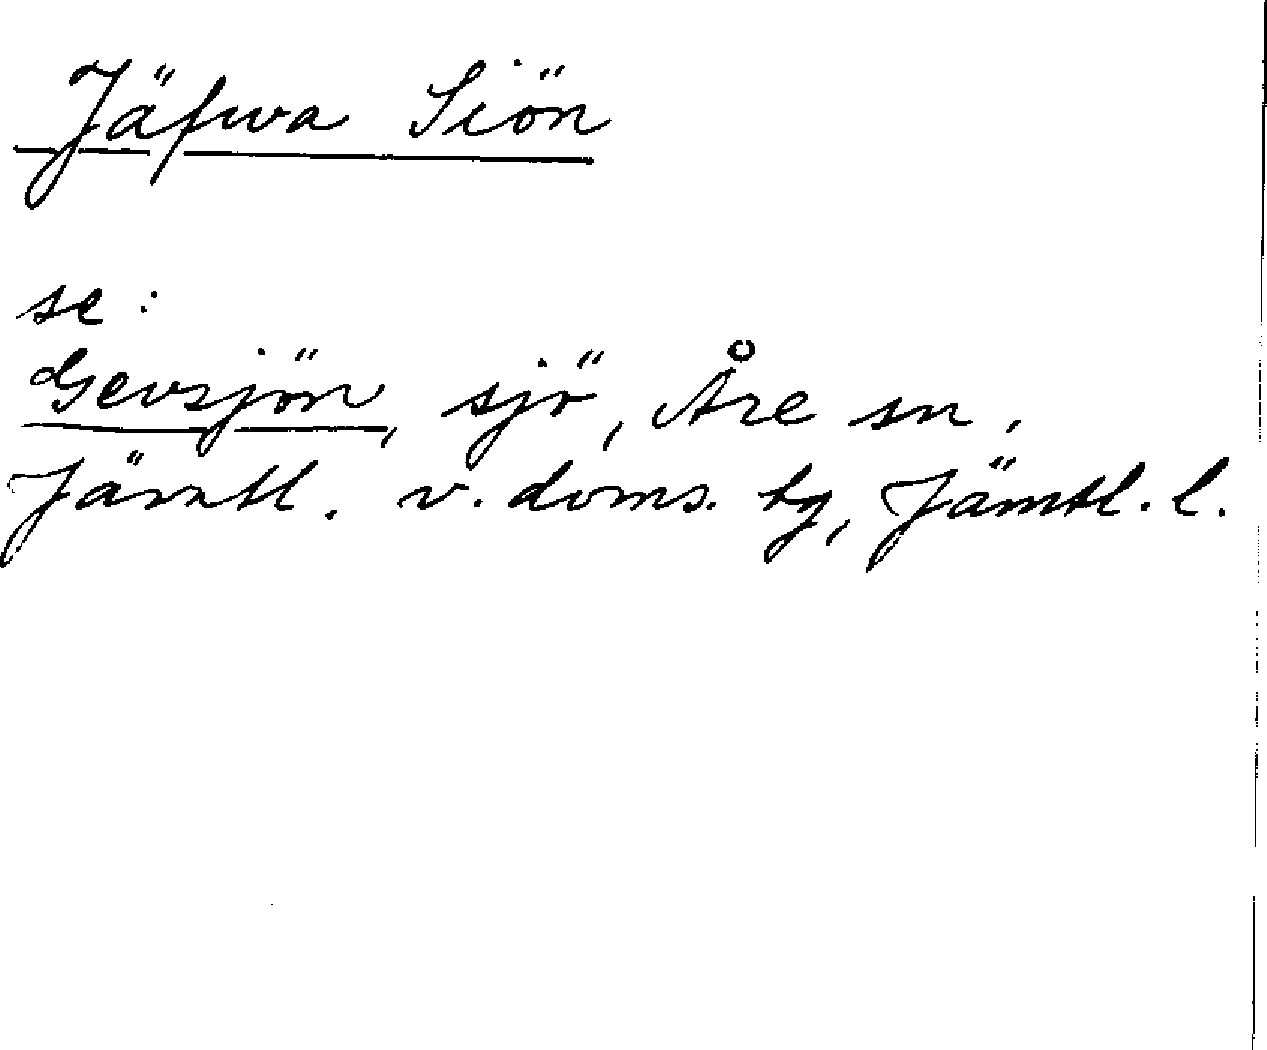 Jäfwa Siön
se:
Gevsjön, sjö, Åre sn,
Jämtl. v. doms. tg, Jämtl. l.